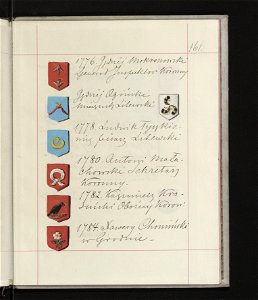 161.
1776. Jędrzej Mokronowski
Generał Inspektor Koronny
Jędrzej Ogiński
Litewski
1778. Ludwik Tyszkie-
wicz Pisarz Litewski
1780. Antoni Mała-
chowski Sekretarz
Koronny.
1782. Kazimierz Kra-
siński Oboźny Koron.
1784. Xawery Chomiński
w Grodnie.